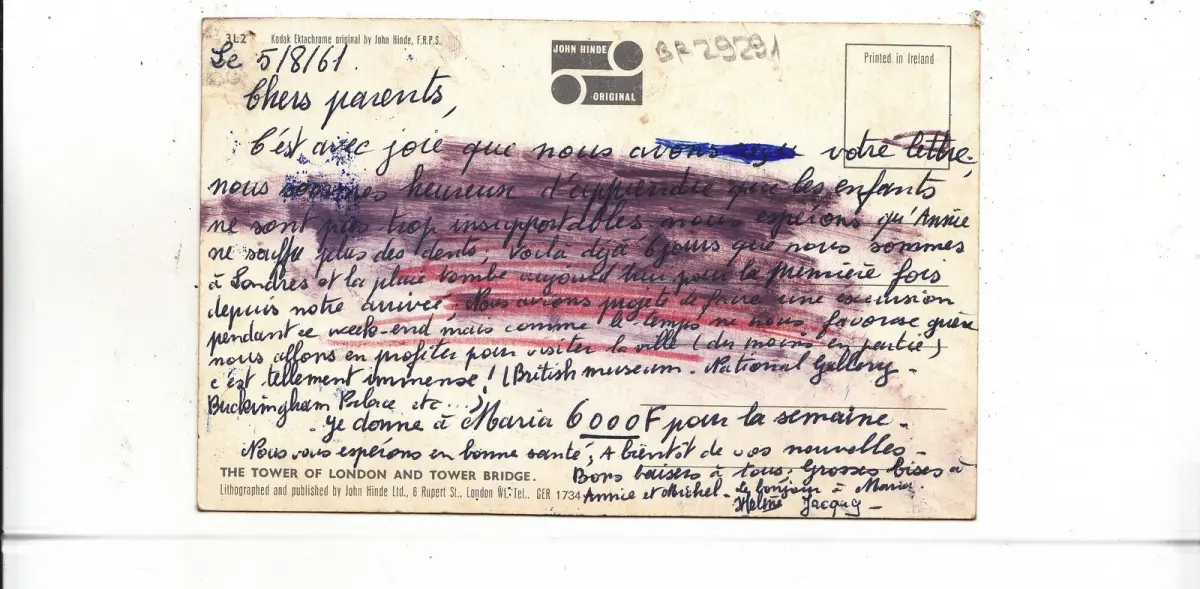 3L2 Kodak Ektachrome original by John Hinde, F.R.P.S.
JOHN HINDE
ORIGINAL
BF29291
Printed in Ireland
Le 5/8/61.
Chers parents,
C'est avec joie que nous avons reçu votre lettre,
nous sommes heureux d'apprendre que les enfants
ne sont pas trop insupportables, nous espérons qu'Annie
ne souffre plus des dents, Voilà déjà 6 jours que nous sommes
à Londres et la pluie tombe aujourd'hui pour la première fois
depuis notre arrivée. Nous avions projeté de faire une excursion
pendant ce week-end mais comme le temps ne nous favorise guère
nous allons en profiter pour visiter la ville (du moins en partie)
c'est tellement immense! (British museum - National Gallery -
Buckingham Palace etc...)
- Je donne à Maria 6000F pour la semaine.
Nous vous espérons en bonne santé, A bientôt de vos nouvelles -
Bons baisers à tous. Grosses bises à
Annie et Michel - Le bonjour à Maria.
Hélène Jacques -
THE TOWER OF LONDON AND TOWER BRIDGE.
Lithographed and published by John Hinde Ltd., 6 Rupert St., London W1. Tel.. GER 1734